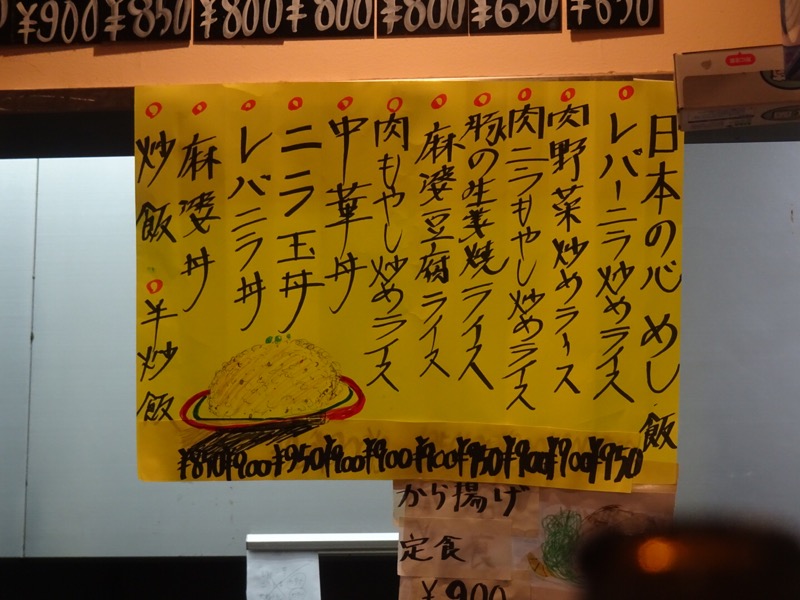 ¥900
¥850
¥800
¥800
¥800
¥650
¥650
日本の心 めし 飯
レバーニラ炒めライス
肉野菜炒めライス
肉ニラもやし炒めライス
豚の生姜焼ライス
麻婆豆腐ライス
肉もやし炒めライス
中華丼
ニラ玉丼
レバニラ丼
麻婆丼
炒飯
半炒飯
¥850
¥900
¥950
¥900
¥900
¥900
¥950
¥900
¥900
¥950
から揚げ
定食
¥900